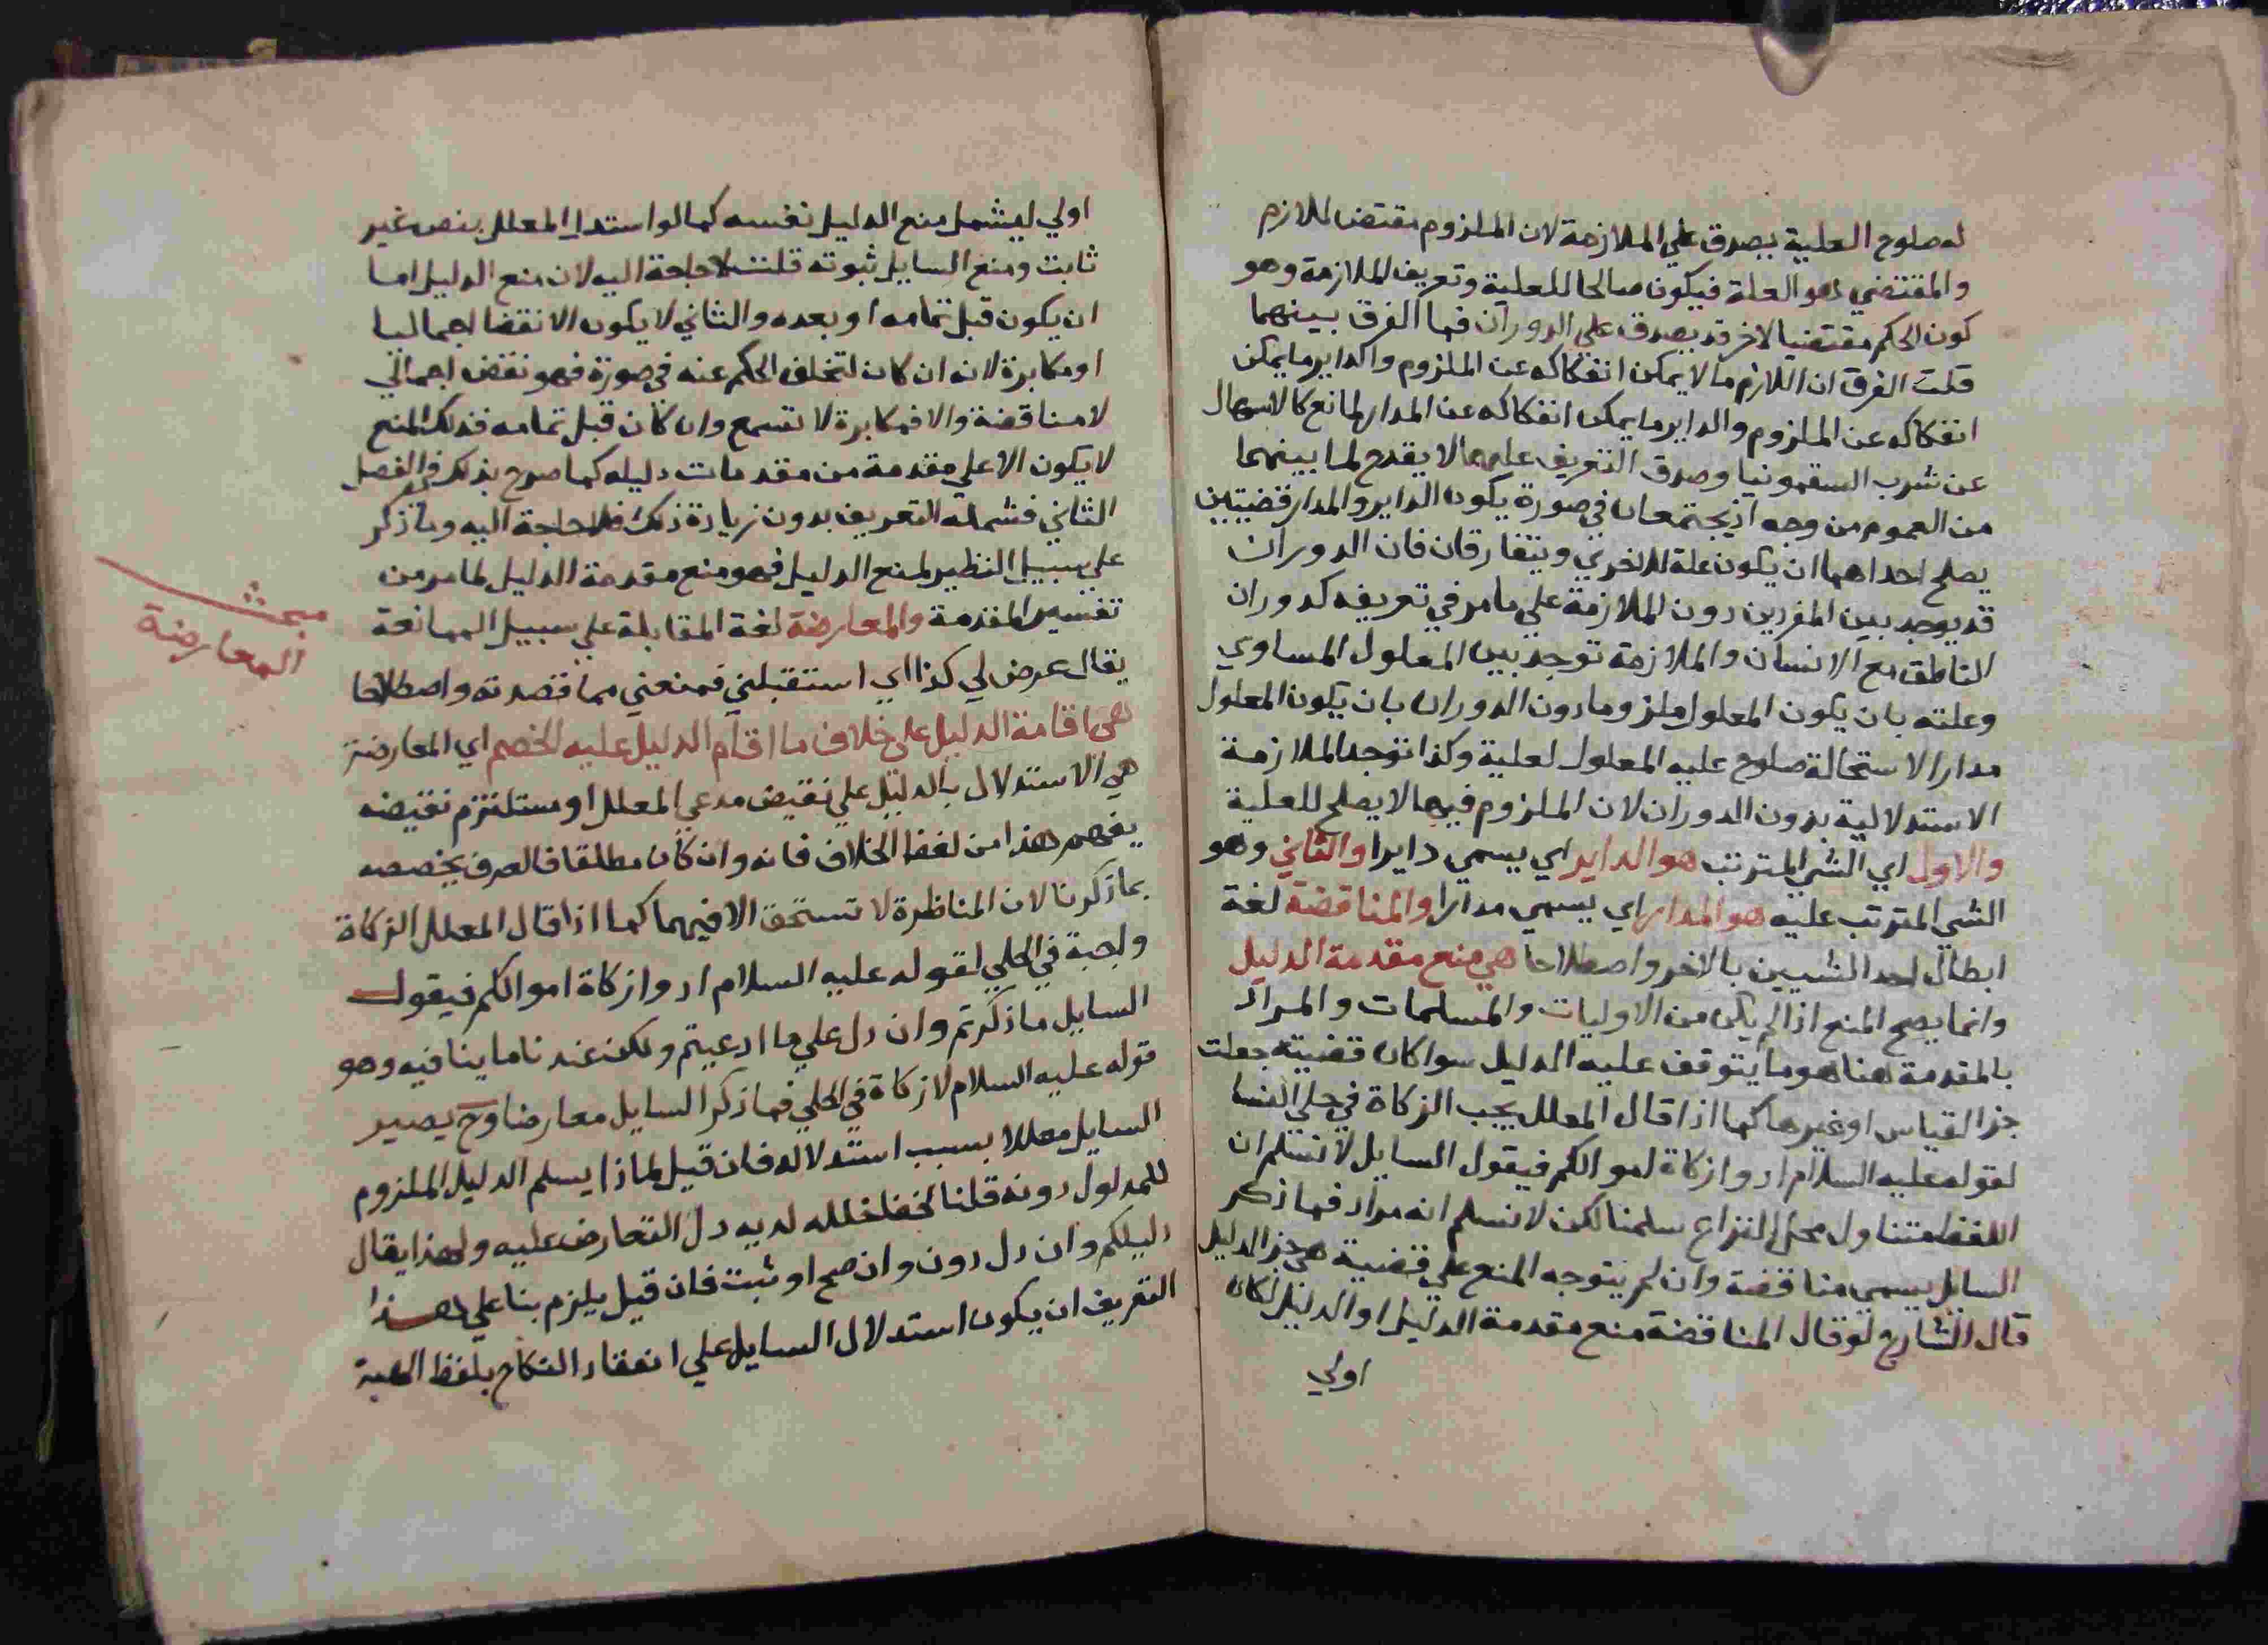 له صلوح العلية يصدق علي الملازمة لان الملزوم مقتض للازم
والمقتضي هو العلة فيكون صالحا للعلية وتعريف الملازمة وهو
كون الحكم مقتضيا لاخر قد يصدق علي الدوران فما الفرق بينهما
قلت الفرق ان اللازم ما لا يمكن انفكاكه عن الملزوم والداير ما يمكن
انفكاكه عن الملزوم والداير ما يمكن انفكاكه عن المدار لمانع كالاسهال
عن شرب السقمونيا وصدق التعريف عليهما لا يقدح لما بينهما
من العموم من وجه اذ يجتمعان في صورة يكون الداير والمدار قضيتين
يصلح احداهما ان يكون علة للاخري ويتفارقان فان الدوران
قد يوجد بين المفردين دون الملازمة علي ما مر في تعريفه كدوران
الناطق مع الانسان والملازمة توجد بين المعلول المساوي
وعلته بان يكون المعلول ملزوما دون الدوران بان يكون المعلول
مدارا لاستحالة صلوح علية المعلول لعلية وكذا توجد الملازمة
الاستدلالية بدون الدوران لان الملزوم فيها لا يصلح للعلية
والاول اي الشي المترتب هو الداير اي يسمي دايرا والثاني وهو
الشي المترتب عليه هو المدار اي يسمي مدارا والمناقضة لغة
ابطال احد الشيين بالاخر واصطلاحا هي منع مقدمة الدليل
وانما يصح المنع اذا لم يكن من الاوليات والمسلمات والمراد
بالمقدمة هنا هو ما يتوقف عليه الدليل سوا كان قضيته جعلت
جز القياس او غيرها كما اذا قال المعلل يجب الزكاة في حلي النسا
لقوله عليه السلام ادوا زكاة اموالكم فيقول السايل لا نسلم ان
اللفظ متناول محل النزاع سلمنا لكن لا نسلم انه مراد فما ذكر
السايل يسمي مناقضة وان لم يتوجه المنع علي قضية هي جز الدليل
قال الشارح لو قال المناقضة منع مقدمة الدليل او الدليل لكان
اولي
اولي ليشمل منع الدليل نفسه كما لو استدل المعلل بنص غير
ثابت ومنع السايل ثبوته قلت لا حاجة اليه لان منع الدليل اما
ان يكون قبل تمامه او بعده والثاني لا يكون الا نقضا اجماليا
او مكابرة لانه ان كان لتخلف الحكم عنه في صورة فهو نقض اجمالي
لا مناقضة والا فمكابرة لا تسمع وان كان قبل تمامه فذلك المنع
لا يكون الا علي مقدمة من مقدمات دليله كما صرح بذلك في الفصل
الثاني فشمله التعريف بدون زيادة ذلك فلا حاجة اليه وما ذكر
علي سبيل النظير لمنع الدليل فهو منع مقدمة الدليل لما مر من
تفسير المقدمة والمعارضة لغة المقابلة علي سبيل الممانعة
مبحث
المعارضة
يقال عرض لي كذا اي استقبلني فمنعني مما قصدته واصطلاحا
هي اقامة الدليل علي خلاف ما اقام الدليل عليه الخصم اي المعارضة
هي الاستدلال بالدليل علي نقيض مدعي المعلل او مستلزم نقيضه
يفهم هذا من لفظ الخلاف فانه وان كان مطلقا فالعرف يخصصه
بما ذكرنا لان المناظرة لا تستحق الا فيهما كما اذا قال المعلل الزكاة
واجبة في الحلي لقوله عليه السلام ادوا زكاة اموالكم فيقول
السايل ما ذكرتم وان دل علي ما ادعيتم ولكن عندنا ما ينافيه وهو
قوله عليه السلام لا زكاة في الحلي فما ذكر السايل معارضا وح يصير
السايل معللا بسبب استدلاله فان قيل لماذا يسلم الدليل الملزوم
للمدلول دونه قلنا لخفا خلله لديه دل التعارض عليه ولهذا يقال
دليلكم وان دل دون وان صح او ثبت فان قيل يلزم بنا علي هذا
التعريف ان يكون استدلال السايل علي انعقاد النكاح بلفظ الهبة